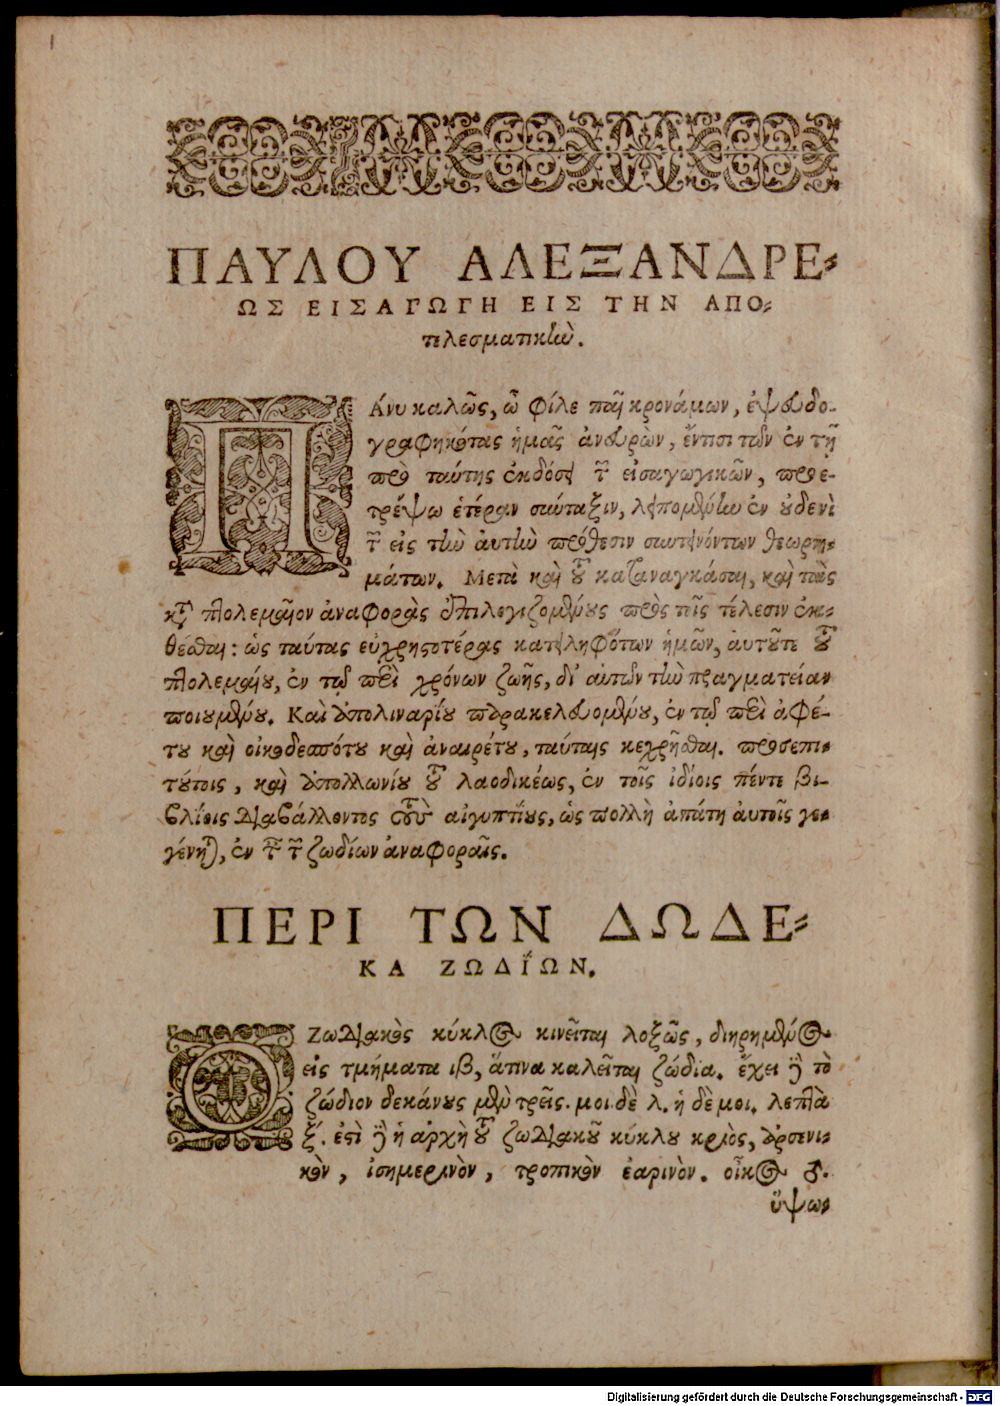 1
ΠΑΥΛΟΥ ΑΛΕΞΑΝΔΡΕ-
ΩΣ ΕΙΣΑΓΩΓΗ ΕΙΣ ΤΗΝ ΑΠΟ-
τελεσματικὼ.
ΠΆνυ καλῶς, ὦ φίλε παῖ κρονάμων, ἐψευδο-
γραφηκότας ἡμᾶς ἀνευρὼν, ἔντισι τῶν ἐν τῇ
πρὸ ταύτης ἐκδόσει τῶν εἰσαγωγικῶν, προε-
τρέψω ἑτέραν σύνταξιν, λειπομένην ἐν οὐδενὶ
τῶν εἰς τὴν ἀυτὴν πρόθεσιν συντεινόντων θεωρη-
μάτων. Μετὰ καὶ τοῦ καταναγκάσαι, καὶ τὰς
κατὰ πτολεμαῖον ἀναφορὰς ἐπιλεγιζομένους πρὸς ταῖς τέλεσιν ἐκ-
θέσθαι: ὡς ταύτας εὐχρηστοτέρας κατειληφότων ἡμῶν, ἀυτοῦτε τοῦ
πτολεμαίου, ἐν τῷ περὶ χρόνων ζωῆς, δι' αὐτῶν τὴν πραγματείαν
ποιουμένου. Καὶ ἀπολιναρίου παρακελευομένου, ἐν τῷ περὶ ἀφέ-
του καὶ οἰκοδεσπότου καὶ ἀναιρέτου, ταύταις κεχρῆσθαι. προσεπι-
τούτοις, καὶ ἀπολλωνίου τοῦ λαοδικέως, ἐν τοῖς ἰδίοις πέντε βι-
βλίοις διαβάλλοντος τοὺς αἰγυπτίους, ὡς πολλὴ ἀπάτη ἀυτοῖς γε-
γένηται, ἐν ταῖς τῶν ζωδίων ἀναφοραῖς.
ΠΕΡΙ ΤΩΝ ΔΩΔΕ-
ΚΑ ΖΩΔΙΩΝ.
Ο ΖωΔιακὸς κύκλος κινεῖται λοξῶς, διηρημένος
εἰς τμήματα ιβ, ἅτινα καλεῖται ζώδια. ἔχει δὲ τὸ
ζώδιον δεκάνους μὲν τρεῖς. μοι. δὲ λ. ἡ δὲ μοι. λεπτὰ
ξ. ἐστὶ δὲ ἡ ἀρχὴ τοῦ ζωδιακοῦ κύκλου κριὸς, ἀρσενι-
κὸν, ἰσημερινὸν, τροπικὸν ἐαρινὸν. οἶκος ♂.
ὕψω-
Digitalisierung gefördert durch die Deutsche Forschungsgemeinschaft - DFG